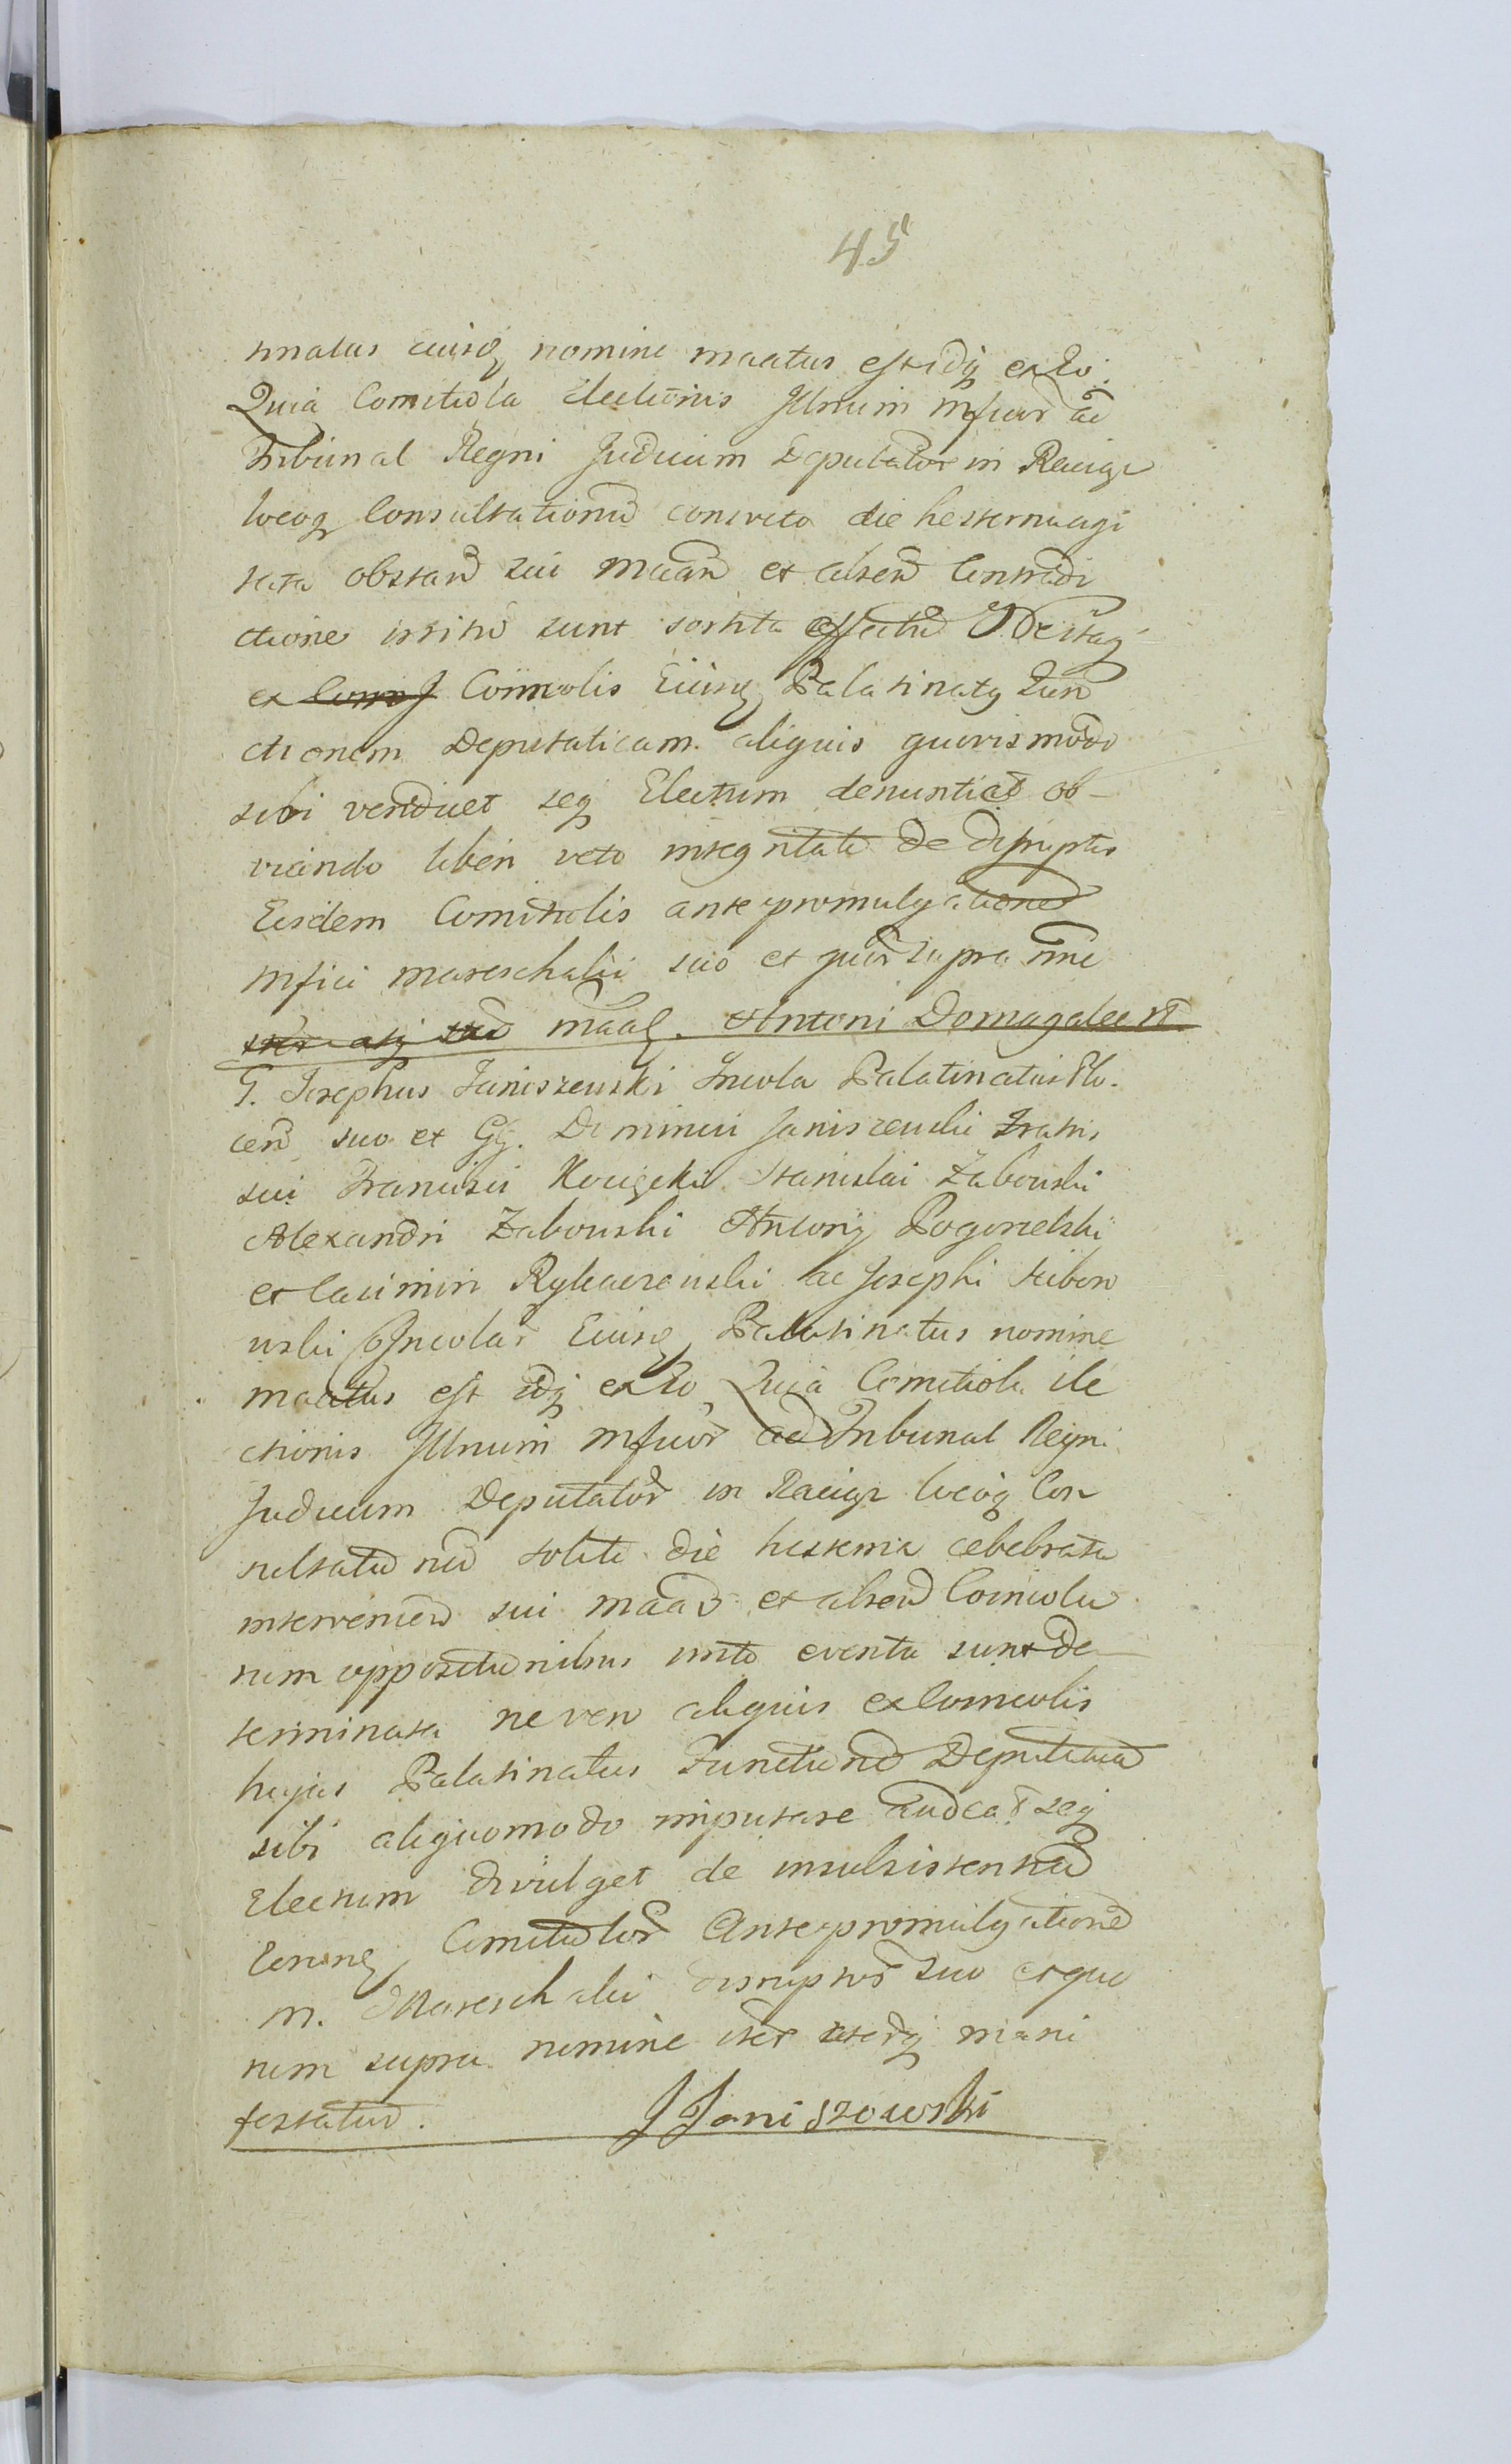 45
tinatus eiusq nomine maatus est idq ex Eo.
Quia Comitiola Electionis Illrnum Mficor ad
Tribunal Regni Judicum Deputator in Raciąż
locoq Consultationu consveto die hesterna agi
tata obstan sui Maan et alren Contradi
ctione irritu sunt sortita effectu
ex Comcolis Eiusq Palatinatq Fun
ctionem Deputaticam aliquis quovismodo
sibi vendicet seq Electum denuntiat ob-
viando liberi veto integritate de disruptis
Eisdem Comitiolis ante promulgatione
Mfici Mareschalii suo et quor supra nne
maaq. Antoni Domagalec
G. Josephus Janiszewski Incola Palatinatus Plo.
cen suo et GG. Dominici Janiszewski Fratris
sui Francisci Stanislai Zabouski
Alexandri Zabowski Antonij Pogorzelski
et Casimiri Rykaczewski ac Josephi
wski Incolar Eiusq Palatinatus nomine
maatus est idq ex Eo, Quia Comitiola Ele
ctionis Illrnum Mficor ad Tribunal Regni
Judicum Deputator in Raciąż locoq Con
sultationu solito die hesterna celebrata
intervenien sui Maan et alren Comcola
rum oppositionibus irrito eventu sunt de
terminata ne vero aliquis ex Comcolis
hujus Palatinatus Functione Deputatica
sibi aliquomodo imputare audeat seq
Electum divulget de insubsistentia
Eorunq Comitiolor Ante promulgatione
M. Mareschalii disruptor suo et quo
rum supra nomine iter iterq mani
festatur. J Janiszowski